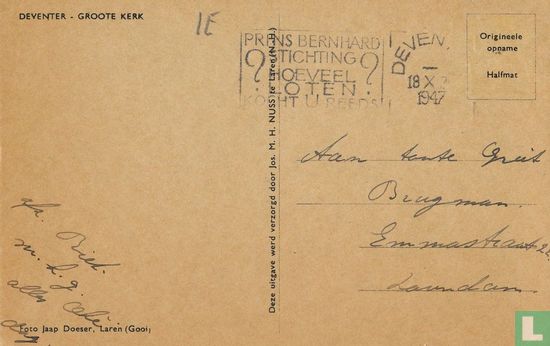 DEVENTER - GROOTE KERK
1E
PRINS BERNHARD
STICHTING
? HOEVEEL ?
LOTEN
KOCHT U REEDS
DEVEN
18 X
1947
Origineele
opname
Halfmat
Deze uitgave werd verzorgd door Jos. M. H. NUSS te Laren (N.H.)
Aan tante Griet
Brugman.
Emmastraat
Riek.
m. h. g.
allen
dag
Foto Jaap Doeser, Laren (Gooi)
L